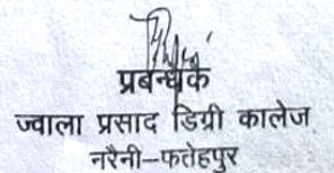 प्रबन्धक
ज्वाला प्रसाद डिग्री कालेज
नरैनी–फतेहपुर